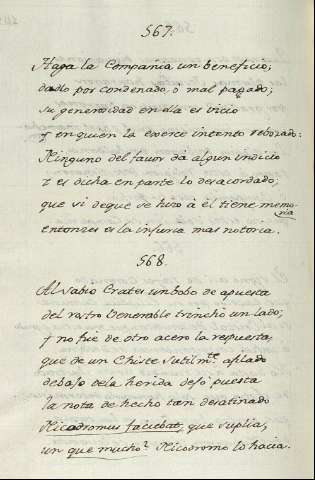 567.
Haga la Compania un beneficio;
dadlo por condenado, ò mal pagado;
su generosidad en dia es vicio
y en quien la exerce intento rebozado:
Ninguno del favor dà algun indicio
y es dicha en parte lo desacordado;
que si de que se hizo à èl tiene memoria
entonces es la injuria mas notoria.
568.
Al sabio Crates un bobo de apuesta
del rostro Venerable trinchò un lado;
y no fuè de otro acero la respuesta,
que de un Chiste sutilmte. afilado
debajo de la herida dejó puesta
la nota de hecho tan desatinado
Nicodromus faciebat, que suplia,
un que mucho? Nicodromo lo hacia.